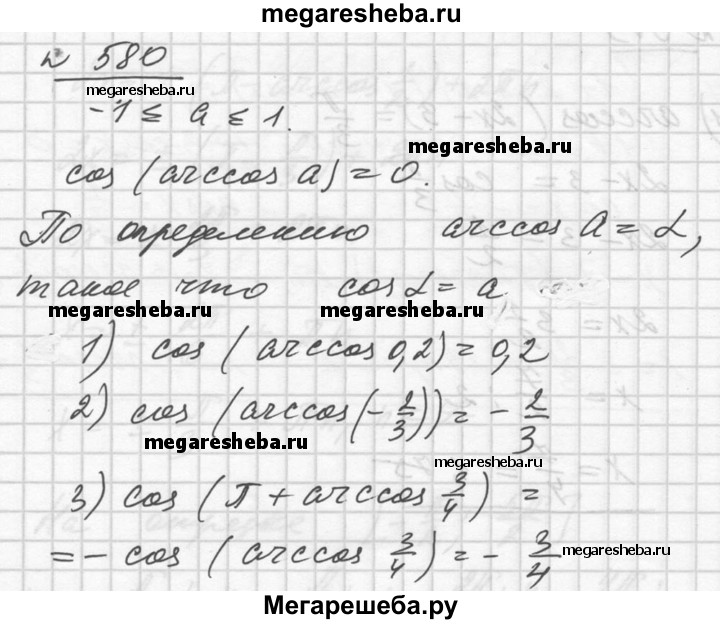 megaresheba.ru
№ 580
megaresheba.ru
-1 ≤ a ≤ 1.
megaresheba.ru
cos (arccos a) = 0.
По определению arccos a = α,
такое что cos α = a
megaresheba.ru megaresheba.ru
1) cos (arccos 0,2) = 0,2
2) cos (arccos(-2/3)) = -2/3
megaresheba.ru
megaresheba.ru
3) cos (π + arccos 3/4) =
= - cos (arccos 3/4) = - 3/4
megaresheba.ru
Мегарешеба.ру